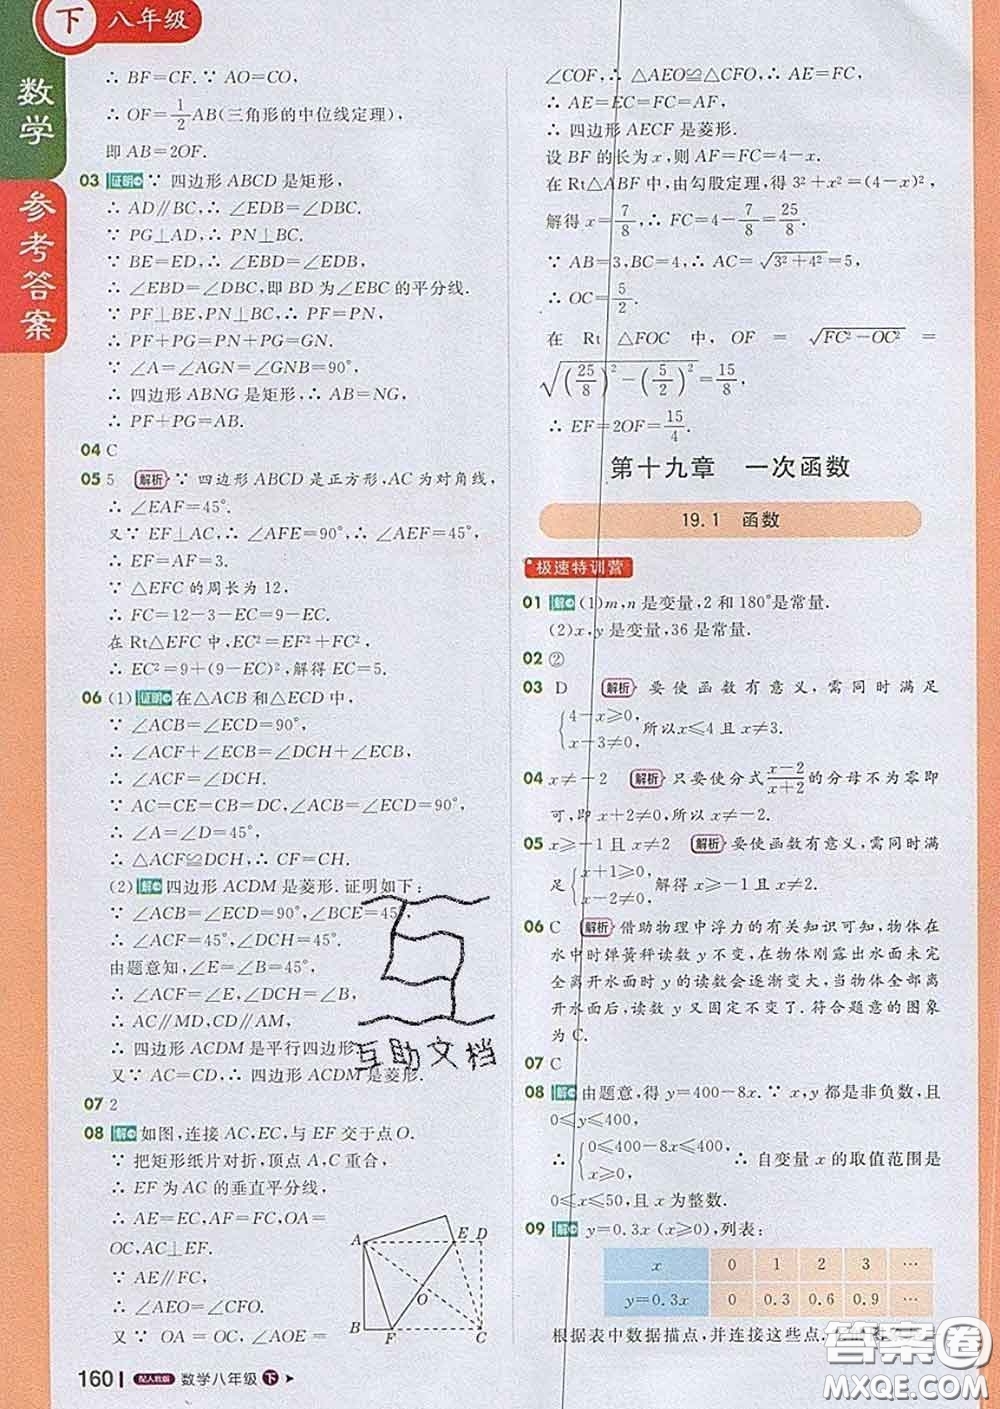 下 八年级
数学
参考答案
∴ BF=CF.∵ AO=CO,
∴ OF=1/2AB(三角形的中位线定理),
即 AB=2OF.
03 证明 ∵ 四边形 ABCD 是矩形,
∴ AD∥BC,∴ ∠EDB=∠DBC.
∵ PG⊥AD,∴ PN⊥BC.
∵ BE=ED,∴ ∠EBD=∠EDB,
∴ ∠EBD=∠DBC,即 BD 为∠EBC 的平分线.
∵ PF⊥BE,PN⊥BC,∴ PF=PN,
∴ PF+PG=PN+PG=GN.
∵ ∠A=∠AGN=∠GNB=90°,
∴ 四边形 ABNG 是矩形,∴ AB=NG,
∴ PF+PG=AB.
04 C
05 5 解析 ∵ 四边形 ABCD 是正方形,AC 为对角线,
∴ ∠EAF=45°.
又∵ EF⊥AC,∴ ∠AFE=90°,∴ ∠AEF=45°,
∴ EF=AF=3.
∵ △EFC 的周长为 12,
∴ FC=12-3-EC=9-EC.
在 Rt△EFC 中,EC²=EF²+FC²,
∴ EC²=9+(9-EC)²,解得 EC=5.
06 (1)证明 在△ACB 和△ECD 中,
∵ ∠ACB=∠ECD=90°,
∴ ∠ACF+∠ECB=∠DCH+∠ECB,
∴ ∠ACF=∠DCH.
∵ AC=CE=CB=DC,∠ACB=∠ECD=90°,
∴ ∠A=∠D=45°,
∴ △ACF≌△DCH,∴ CF=CH.
(2)解 四边形 ACDM 是菱形.证明如下:
∵ ∠ACB=∠ECD=90°,∠BCE=45°,
∴ ∠ACF=45°,∠DCH=45°.
由题意知,∠E=∠B=45°,
∴ ∠ACF=∠E,∠DCH=∠B,
∴ AC∥MD,CD∥AM,
∴ 四边形 ACDM 是平行四边形.
又∵ AC=CD,∴ 四边形 ACDM 是菱形.
07 2
08 解 如图,连接 AC,EC,与 EF 交于点 O.
∵ 把矩形纸片对折,顶点 A,C 重合,
∴ EF 为 AC 的垂直平分线,
∴ AE=EC,AF=FC,OA=
OC,AC⊥EF.
∵ AE∥FC,
∴ ∠AEO=∠CFO.
又 ∵ OA = OC, ∠AOE =
A E D
O
B F C
160 配人教版 数学八年级 下
∠COF,∴ △AOE≌△CFO,∴ AE=FC,
∴ AE=EC=FC=AF,
∴ 四边形 AECF 是菱形.
设 BF 的长为 x,则 AF=FC=4-x.
在 Rt△ABF 中,由勾股定理,得 3²+x²=(4-x)²,
解得 x=7/8,∴ FC=4-7/8=25/8.
∵ AB=3,BC=4,∴ AC=√(3²+4²)=5,
∴ OC=5/2.
在 Rt △FOC 中, OF = √(FC²-OC²) =
√((25/8)²-(5/2)²)=15/8,
∴ EF=2OF=15/4.
第十九章 一次函数
19.1 函数
极速特训营
01 解 (1)m,n 是变量,2 和 180°是常量.
(2)x,y 是变量,36 是常量.
02 ②
03 D 解析 要使函数有意义,需同时满足
{4-x≥0, x-3≠0, 所以 x≤4 且 x≠3.
04 x≠-2 解析 只要使分式(x-2)/(x+2)的分母不为零即
可,即 x+2≠0,所以 x≠-2.
05 x≥-1 且 x≠2 解析 要使函数有意义,需同时满
足{x+1≥0, x-2≠0, 解得 x≥-1 且 x≠2.
06 C 解析 借助物理中浮力的有关知识可知,物体在
水中时弹簧秤读数 y 不变,在物体刚露出水面未完
全离开水面时 y 的读数会逐渐变大,当物体全部离
开水面后,读数 y 又固定不变了.符合题意的图象
为 C.
07 C
08 解 由题意,得 y=400-8x.∵ x,y 都是非负数,且
0≤y≤400,
∴ {0≤400-8x≤400, x≥0, ∴ 自变量 x 的取值范围是
0≤x≤50,且 x 为整数.
09 解 y=0.3x (x≥0),列表:
x 0 1 2 3 …
y=0.3x 0 0.3 0.6 0.9 …
根据表中数据描点,并连接这些点,
互助文档
答案圈
MXQE.COM